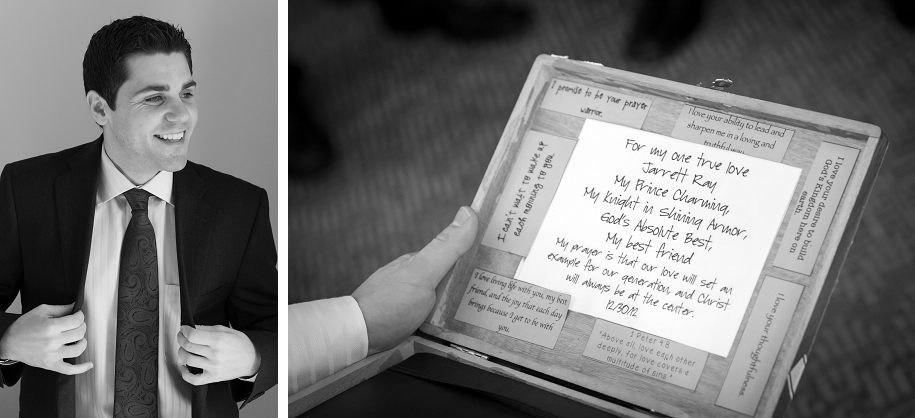 I promise to be your prayer
warrior.
I love your ability to lead and
sharpen me in a loving and
truthful way
I can't wait to wake up
each morning to you
For my one true love
Jarrett Ray
My Prince Charming,
My Knight in Shining Armor,
God's Absolute Best,
My best friend
My prayer is that our love will set an
example for our generation, and Christ
will always be at the center.
12.30.12
I love your desire to build
God's Kingdom here on
earth.
I love loving life with you, my best
friend, and the joy that each day
brings because I get to be with
you.
1 Peter 4:8
"Above all, love each other
deeply, for love covers a
multitude of sins."
I love your thoughtfulness.